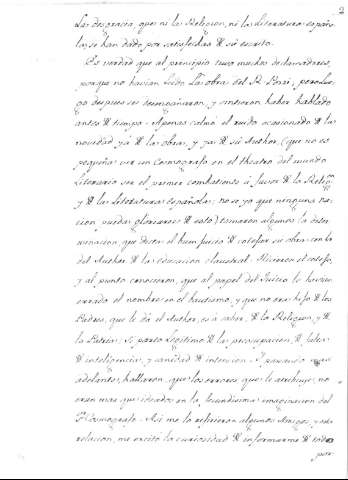 2
La desgracia, que ni la Religion, ni la Literatura españo-
la, se han dado por satisfechas de su escrito.
Es verdad que al principio tuvo muchos declamadores,
porque no havian leido la obra del R. ; pero lue-
go despues se desengañaron, y sintieron haber hablado
antes de tiempo. Apenas calmó el ruido ocasionado de la
novedad ya de la obra, y ya de su Author, (que no es
pequeña ver un Cosmografo en el theatro del mundo
Literario ser el primer combatiente a favor de la Relig.on
y de la Literatura española; no se yo que ninguna na-
cion pueda gloriarse de esto) tomaron algunos la deter-
minacion que dicta el buen juicio de cotejar su obra con la
del Author de la educacion claustral. Hicieron el cotejo,
y al punto conocieron, que al papel del Juicio le havian
errado el nombre en el bautismo, y que no era hijo de los
Padres, que le da el Author, es a saber, de la Religion, y de
la Patria: si parto legitimo de la preocupacion, de falta
de inteligencia, y vanidad de intencion. Y pasando mas
adelante, hallaron, que los errores que le atribuye, no
eran mas que ideados en la fecundisima imaginacion del
Sr. Cosmografo. Asi me lo refirieron algunos Amigos, y esta
relacion, me excitó la curiosidad de informarme de todo
por